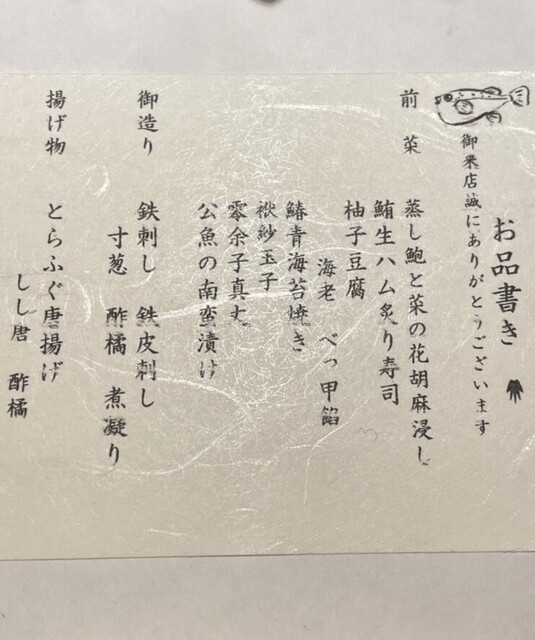 お品書き
御来店誠にありがとうございます
前菜
蒸し鮑と菜の花胡麻浸し
鮪生ハム炙り寿司
柚子豆腐
海老 べっ甲餡
鰆青海苔焼き
袱紗玉子
零余子真丈
公魚の南蛮漬け
御造り
鉄刺し 鉄皮刺し
寸葱 酢橘 煮凝り
揚げ物
とらふぐ唐揚げ
しし唐 酢橘